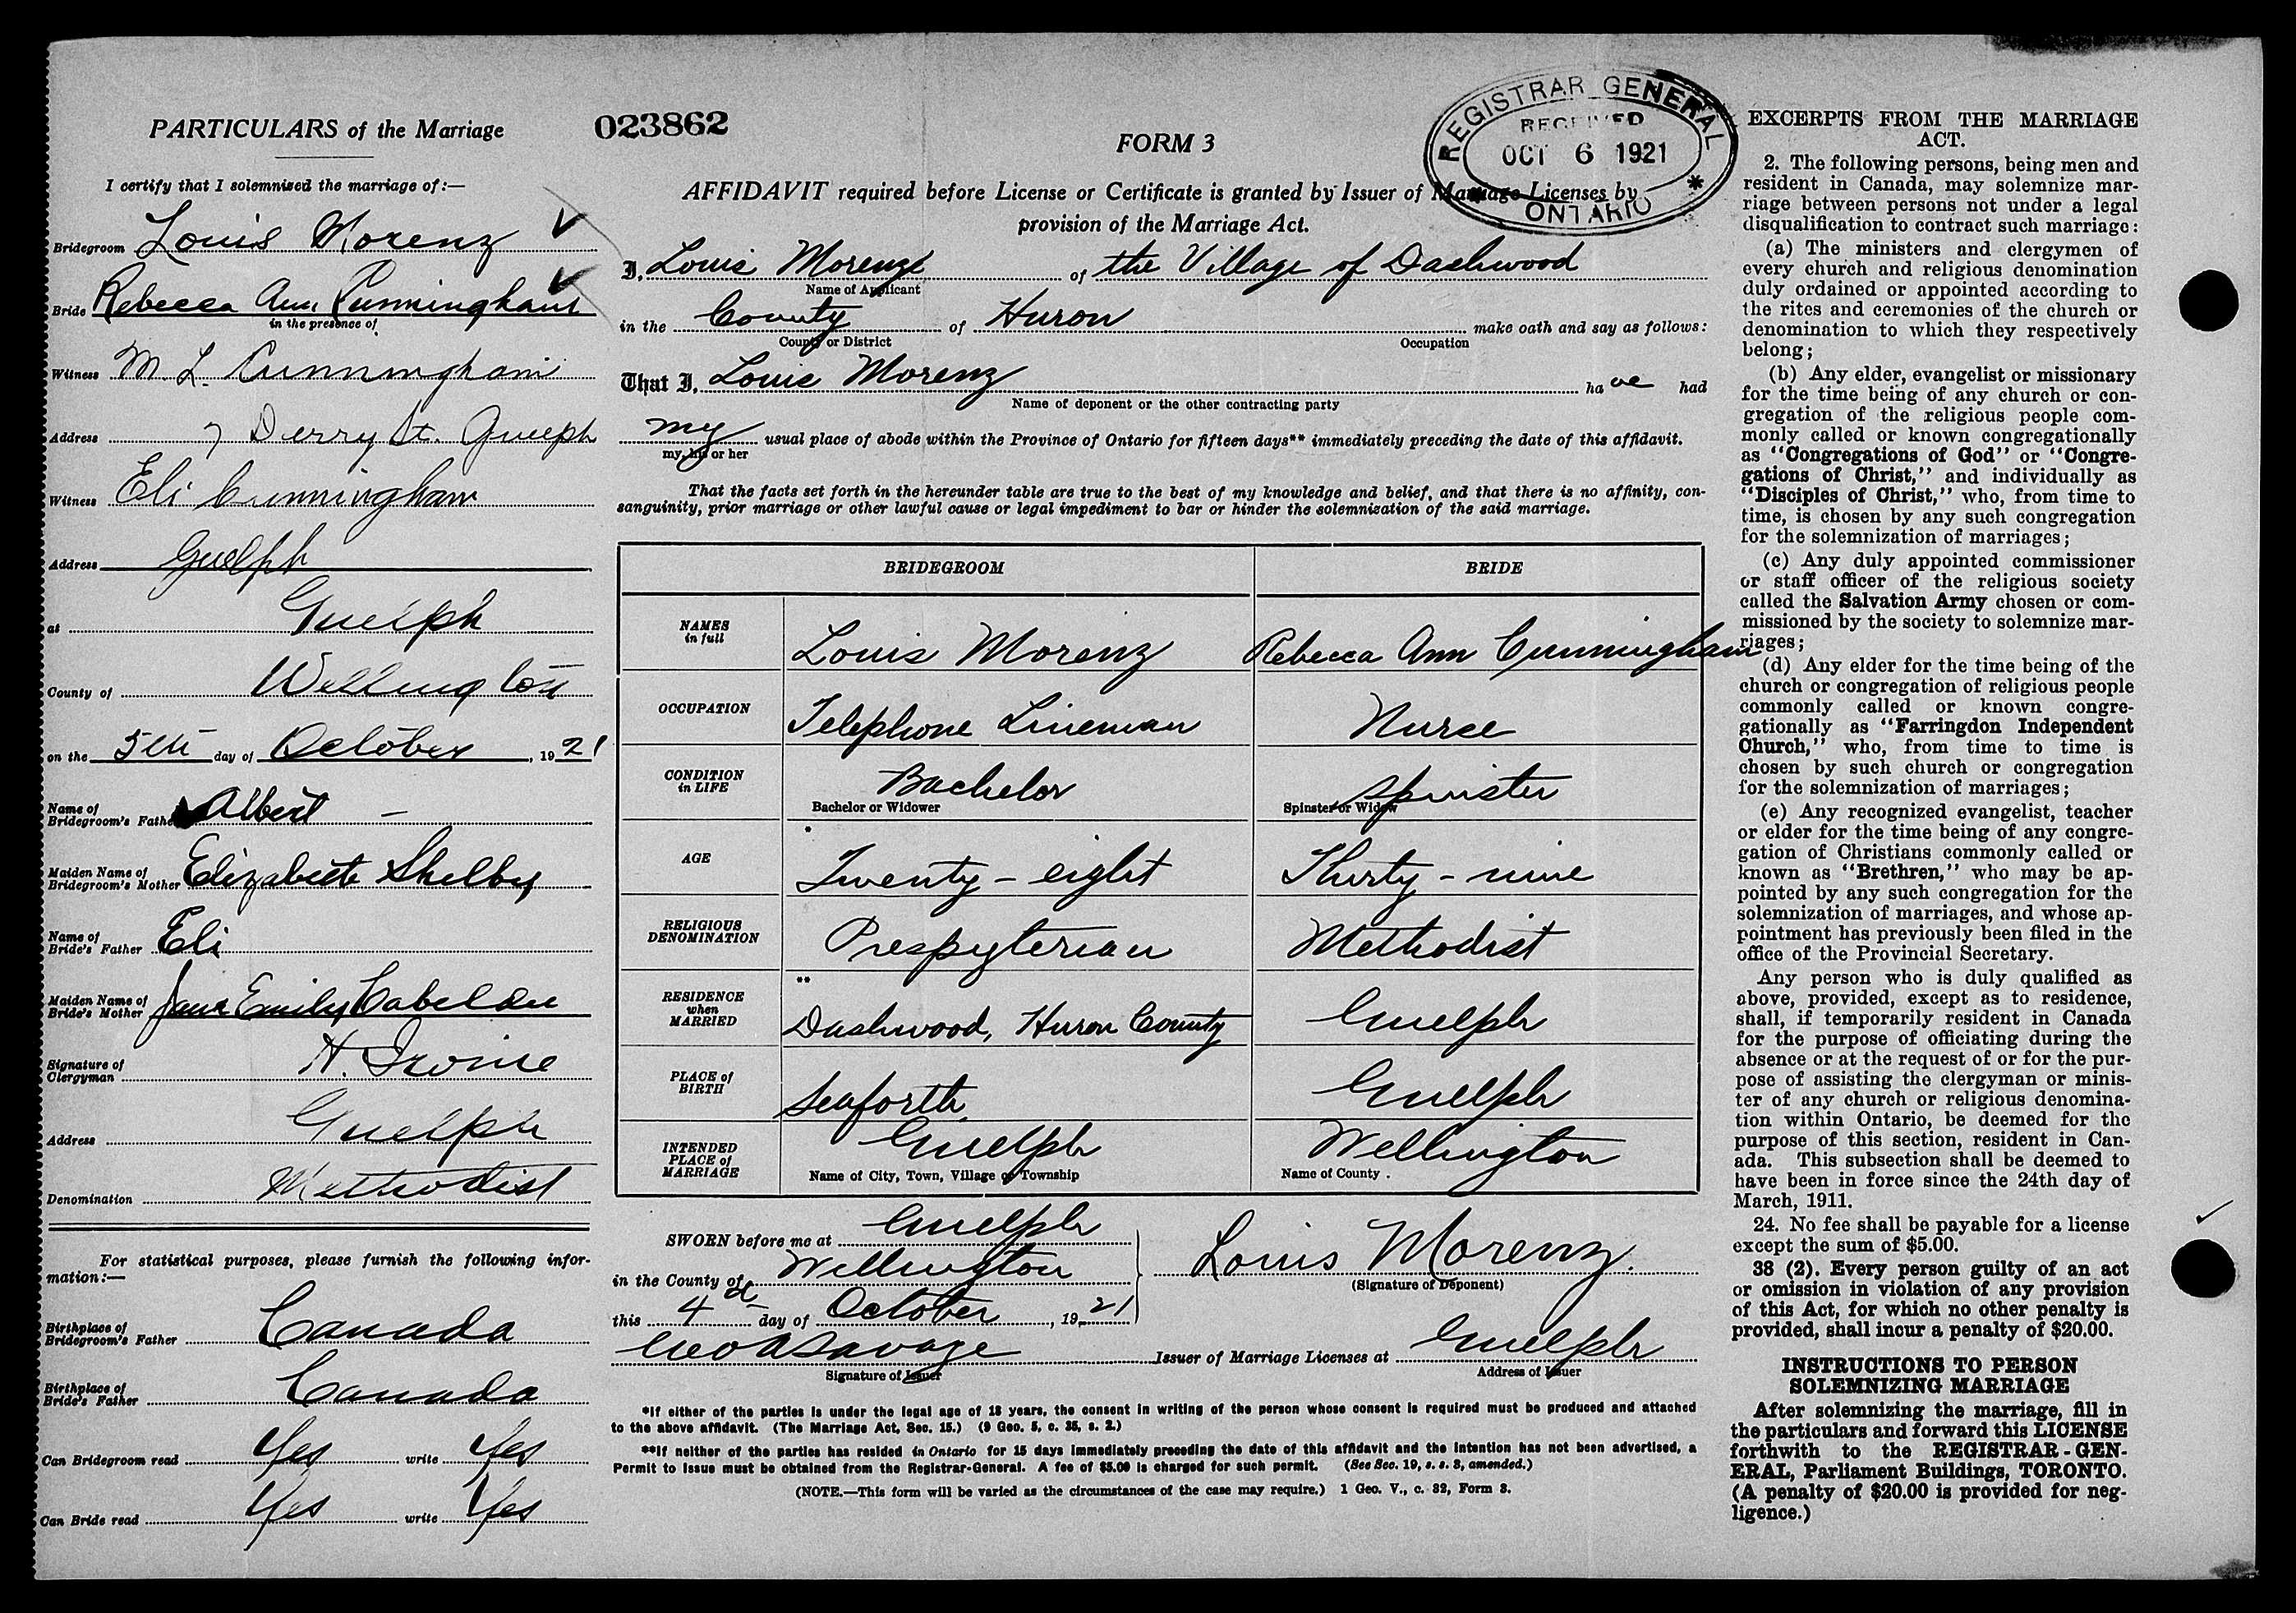 PARTICULARS of the Marriage
I certify that I solemnized the marriage of:—
Bridegroom Louis Morenz
Bride Rebecca Ann Cunningham
in the presence of
Witness M. L. Cunningham
Address 7 Derry St. Guelph
Witness Eli Cunningham
Address Guelph
at Guelph
County of Wellington
on the 5th day of October, 1921
Name of Bridegroom's Father Albert —
Maiden Name of Bridegroom's Mother Elizabeth Shelby
Name of Bride's Father Eli
Maiden Name of Bride's Mother Jane Emily
Signature of Clergyman H. Irvine
Address Guelph
Denomination Methodist
For statistical purposes, please furnish the following infor-
mation:—
Birthplace of Bridegroom's Father Canada
Birthplace of Bride's Father Canada
Can Bridegroom read Yes write Yes
Can Bride read Yes write Yes
023862
FORM 3
REGISTRAR GENERAL
RECEIVED
OCT 6 1921
ONTARIO
AFFIDAVIT required before License or Certificate is granted by Issuer of Marriage Licenses by
provision of the Marriage Act.
I, Louis Morenz of the Village of Dashwood
Name of Applicant
in the County of Huron make oath and say as follows:
County or District Occupation
That I, Louis Morenz have had
Name of deponent or the other contracting party
my usual place of abode within the Province of Ontario for fifteen days** immediately preceding the date of this affidavit.
my, his or her
That the facts set forth in the hereunder table are true to the best of my knowledge and belief, and that there is no affinity, con-
sanguinity, prior marriage or other lawful cause or legal impediment to bar or hinder the solemnization of the said marriage.
BRIDEGROOM BRIDE
NAMES in full Louis Morenz Rebecca Ann Cunningham
OCCUPATION Telephone Lineman Nurse
CONDITION in LIFE Bachelor Spinster
Bachelor or Widower Spinster or Widow
*
AGE Twenty - eight Thirty - nine
RELIGIOUS DENOMINATION Presbyterian Methodist
**
RESIDENCE when MARRIED Dashwood, Huron County Guelph
PLACE of BIRTH Seaforth Guelph
INTENDED PLACE of MARRIAGE Guelph Wellington
Name of City, Town, Village or Township Name of County .
SWORN before me at Guelph
in the County of Wellington
Louis Morenz.
(Signature of Deponent)
this 4th day of October, 1921
Geo A Savage Issuer of Marriage Licenses at Guelph
Signature of Issuer Address of Issuer
*If either of the parties is under the legal age of 18 years, the consent in writing of the person whose consent is required must be produced and attached
to the above affidavit. (The Marriage Act, Sec. 15.) (9 Geo. 5, c. 35, s. 2.)
**If neither of the parties has resided in Ontario for 15 days immediately preceding the date of this affidavit and the intention has not been advertised, a
Permit to issue must be obtained from the Registrar-General. A fee of $5.00 is charged for such permit. (See Sec. 19, s. s. 3, amended.)
(NOTE.—This form will be varied as the circumstances of the case may require.) 1 Geo. V., c. 32, Form 3.
EXCERPTS FROM THE MARRIAGE
ACT.
2. The following persons, being men and
resident in Canada, may solemnize mar-
riage between persons not under a legal
disqualification to contract such marriage:
(a) The ministers and clergymen of
every church and religious denomination
duly ordained or appointed according to
the rites and ceremonies of the church or
denomination to which they respectively
belong;
(b) Any elder, evangelist or missionary
for the time being of any church or con-
gregation of the religious people com-
monly called or known congregationally
as "Congregations of God" or "Congre-
gations of Christ," and individually as
"Disciples of Christ," who, from time to
time, is chosen by any such congregation
for the solemnization of marriages;
(c) Any duly appointed commissioner
or staff officer of the religious society
called the Salvation Army chosen or com-
missioned by the society to solemnize mar-
riages;
(d) Any elder for the time being of the
church or congregation of religious people
commonly called or known congre-
gationally as "Farringdon Independent
Church," who, from time to time is
chosen by such church or congregation
for the solemnization of marriages;
(e) Any recognized evangelist, teacher
or elder for the time being of any congre-
gation of Christians commonly called or
known as "Brethren," who may be ap-
pointed by any such congregation for the
solemnization of marriages, and whose ap-
pointment has previously been filed in the
office of the Provincial Secretary.
Any person who is duly qualified as
above, provided, except as to residence,
shall, if temporarily resident in Canada
for the purpose of officiating during the
absence or at the request of or for the pur-
pose of assisting the clergyman or minis-
ter of any church or religious denomina-
tion within Ontario, be deemed for the
purpose of this section, resident in Can-
ada. This subsection shall be deemed to
have been in force since the 24th day of
March, 1911.
24. No fee shall be payable for a license
except the sum of $5.00.
38 (2). Every person guilty of an act
or omission in violation of any provision
of this Act, for which no other penalty is
provided, shall incur a penalty of $20.00.
INSTRUCTIONS TO PERSON
SOLEMNIZING MARRIAGE
After solemnizing the marriage, fill in
the particulars and forward this LICENSE
forthwith to the REGISTRAR-GEN-
ERAL, Parliament Buildings, TORONTO.
(A penalty of $20.00 is provided for neg-
ligence.)